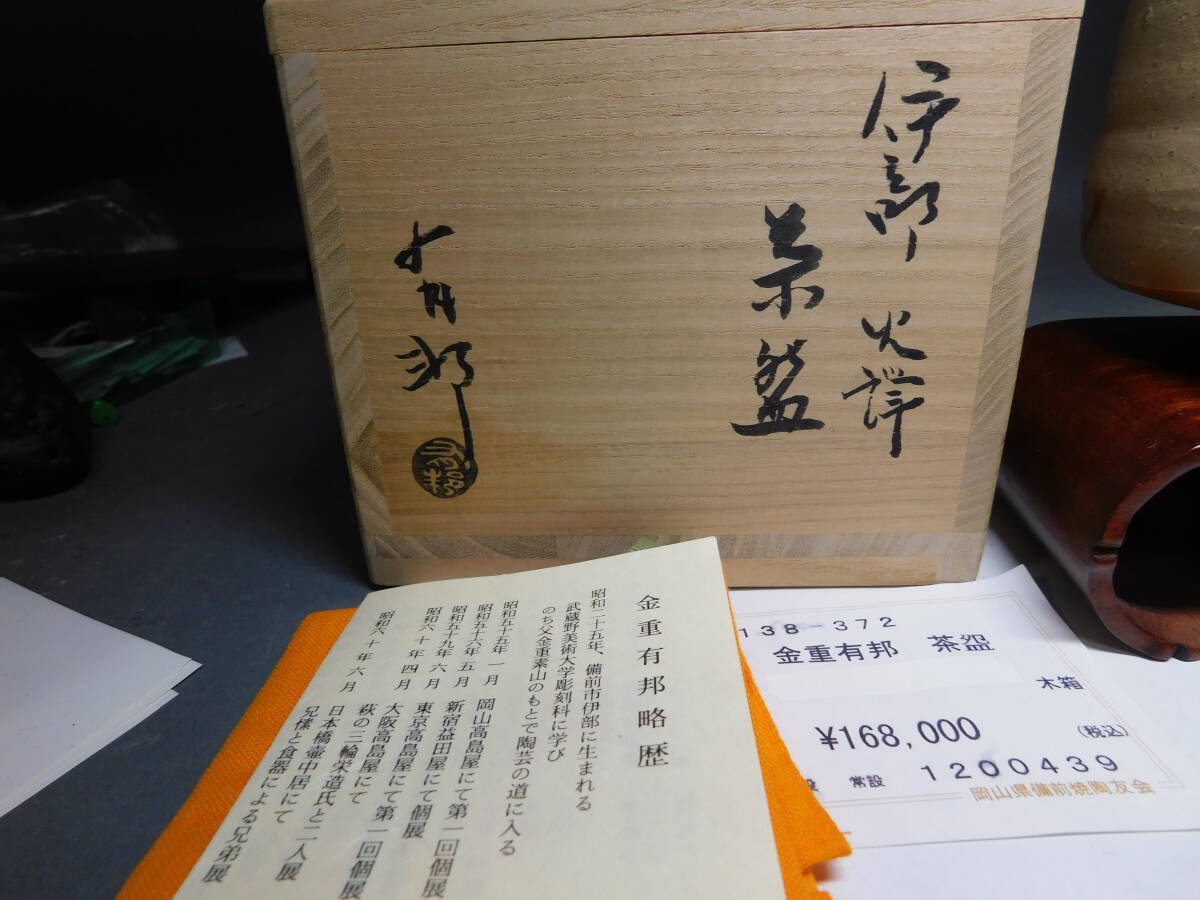 伊部 火襷
茶盌
有邦
金重有邦略歴
昭和二十五年、備前市伊部に生まれる
武蔵野美術大学彫刻科に学び
のち父金重素山のもとで陶芸の道に入る
昭和五十五年 一月 岡山高島屋にて第一回個展
昭和五十六年 五月 新宿益田屋にて個展
昭和五十九年 六月 東京高島屋にて第一回個展
昭和六十年 四月 大阪高島屋にて第一回個展
萩の三輪栄造氏と二人展
昭和六十年 六月 日本橋壷中居にて
兄愫と食器による兄弟展
138-372
金重有邦 茶盌
木箱
¥168,000 (税込)
常設 1200439
岡山県備前焼陶友会